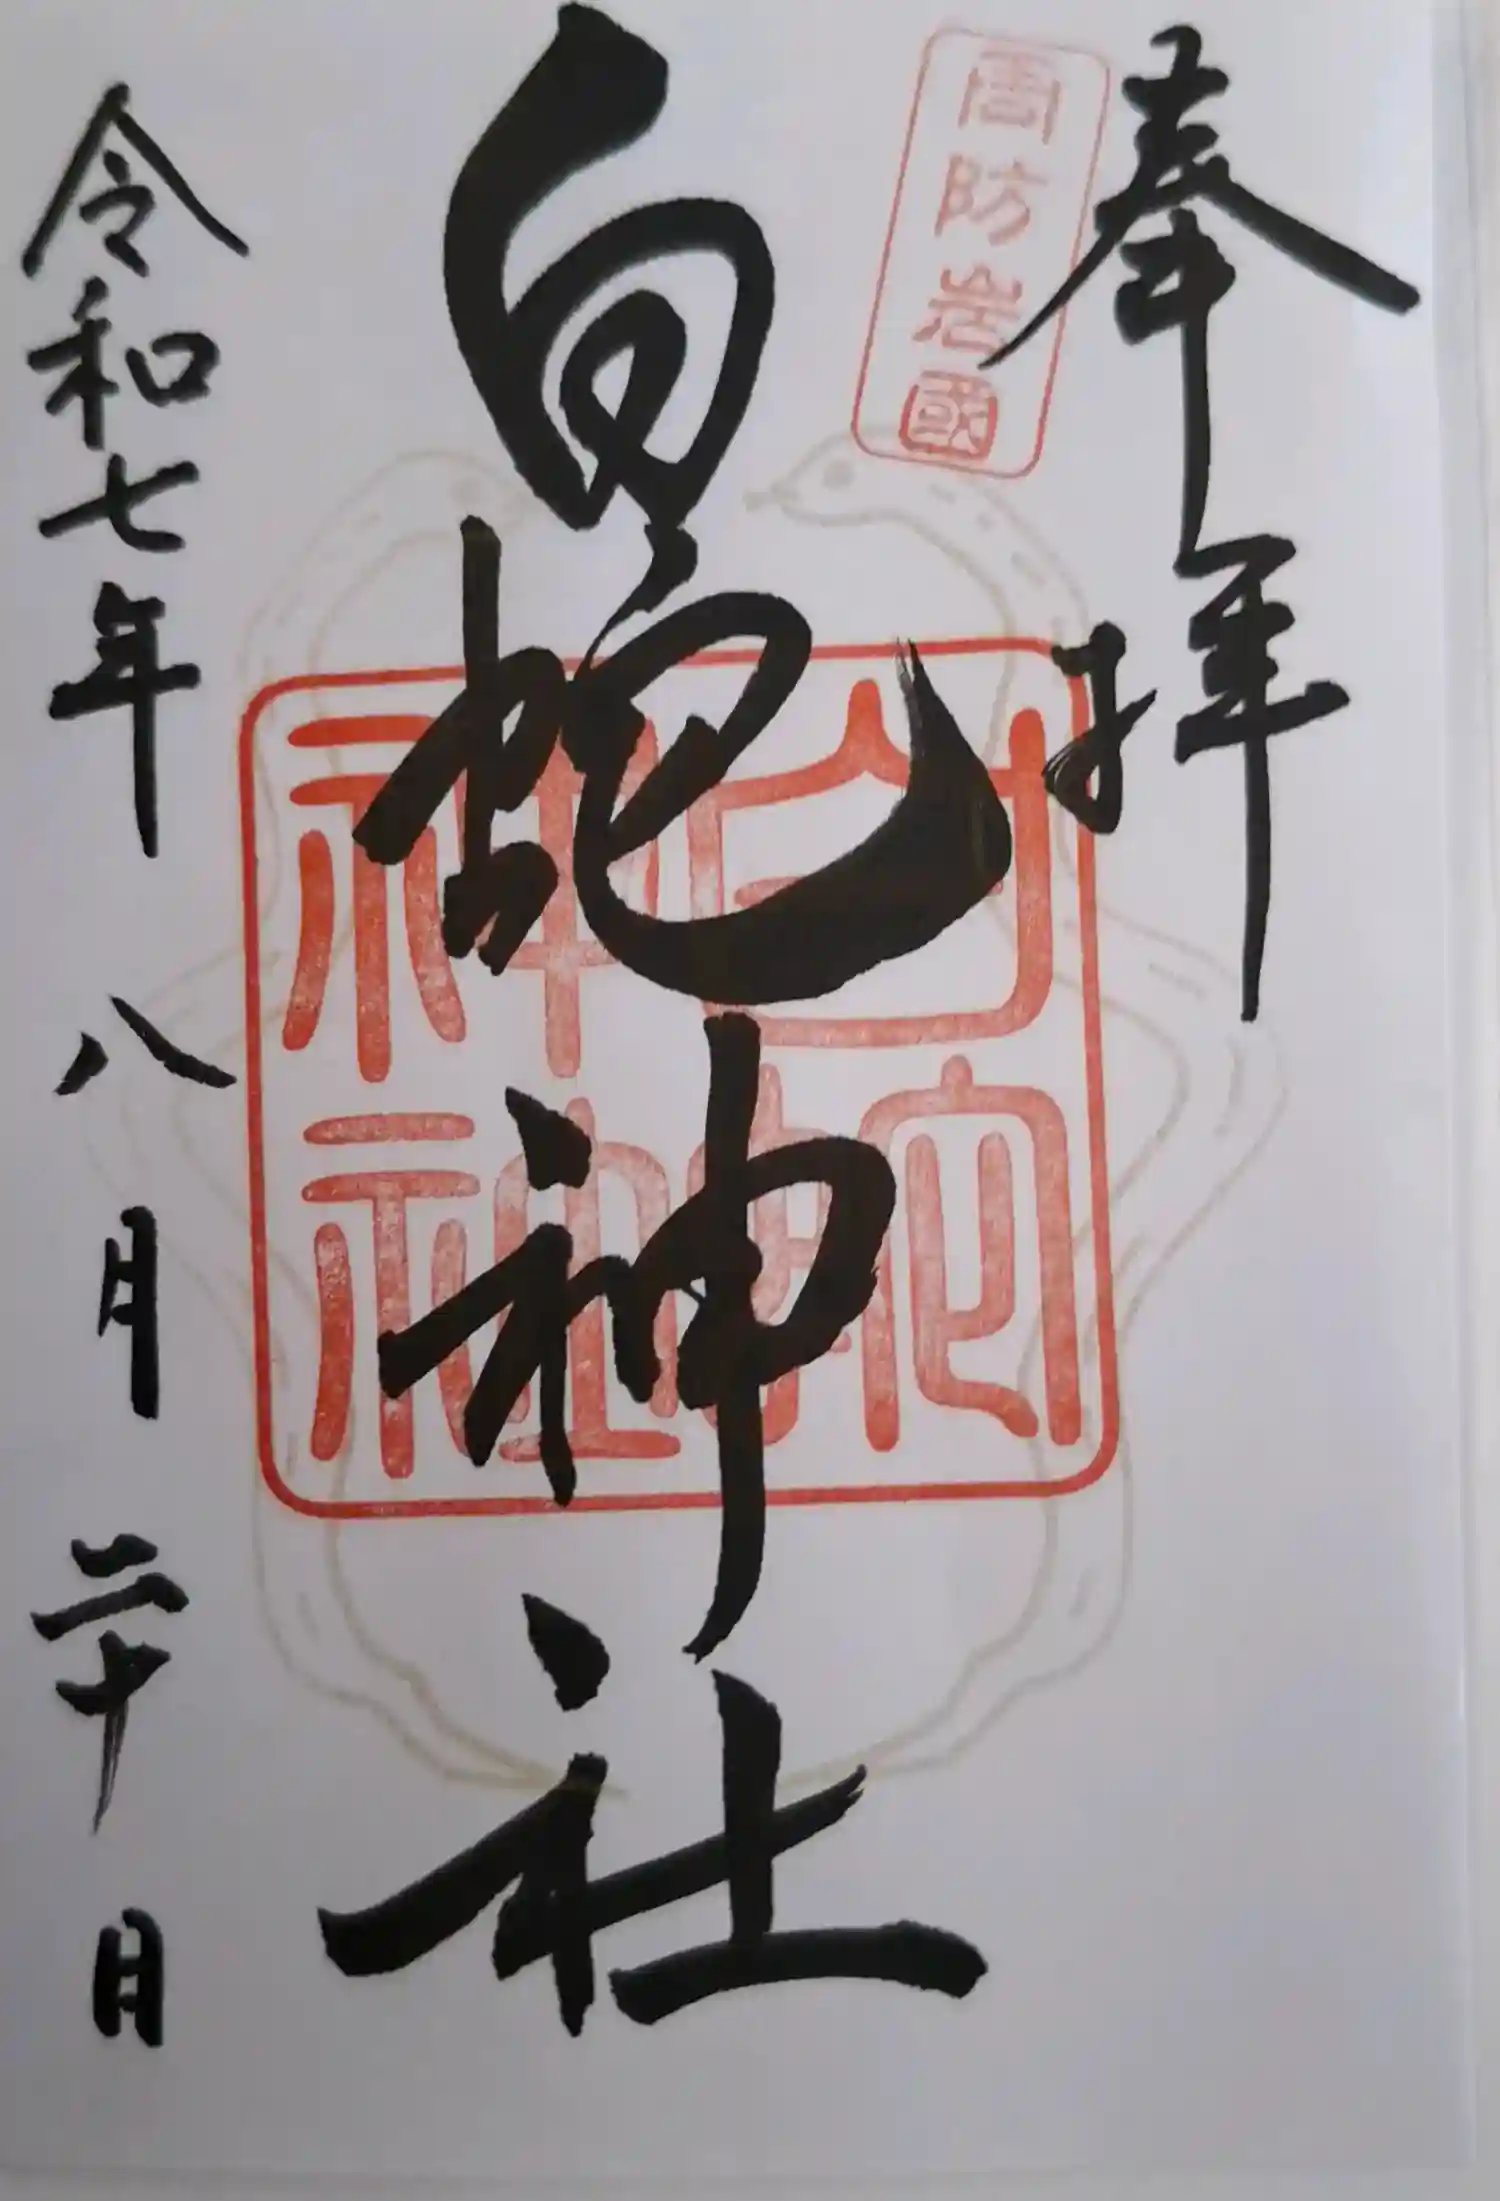 奉拝
周防岩國
白蛇神社
白蛇
神社
令和七年八月二十日